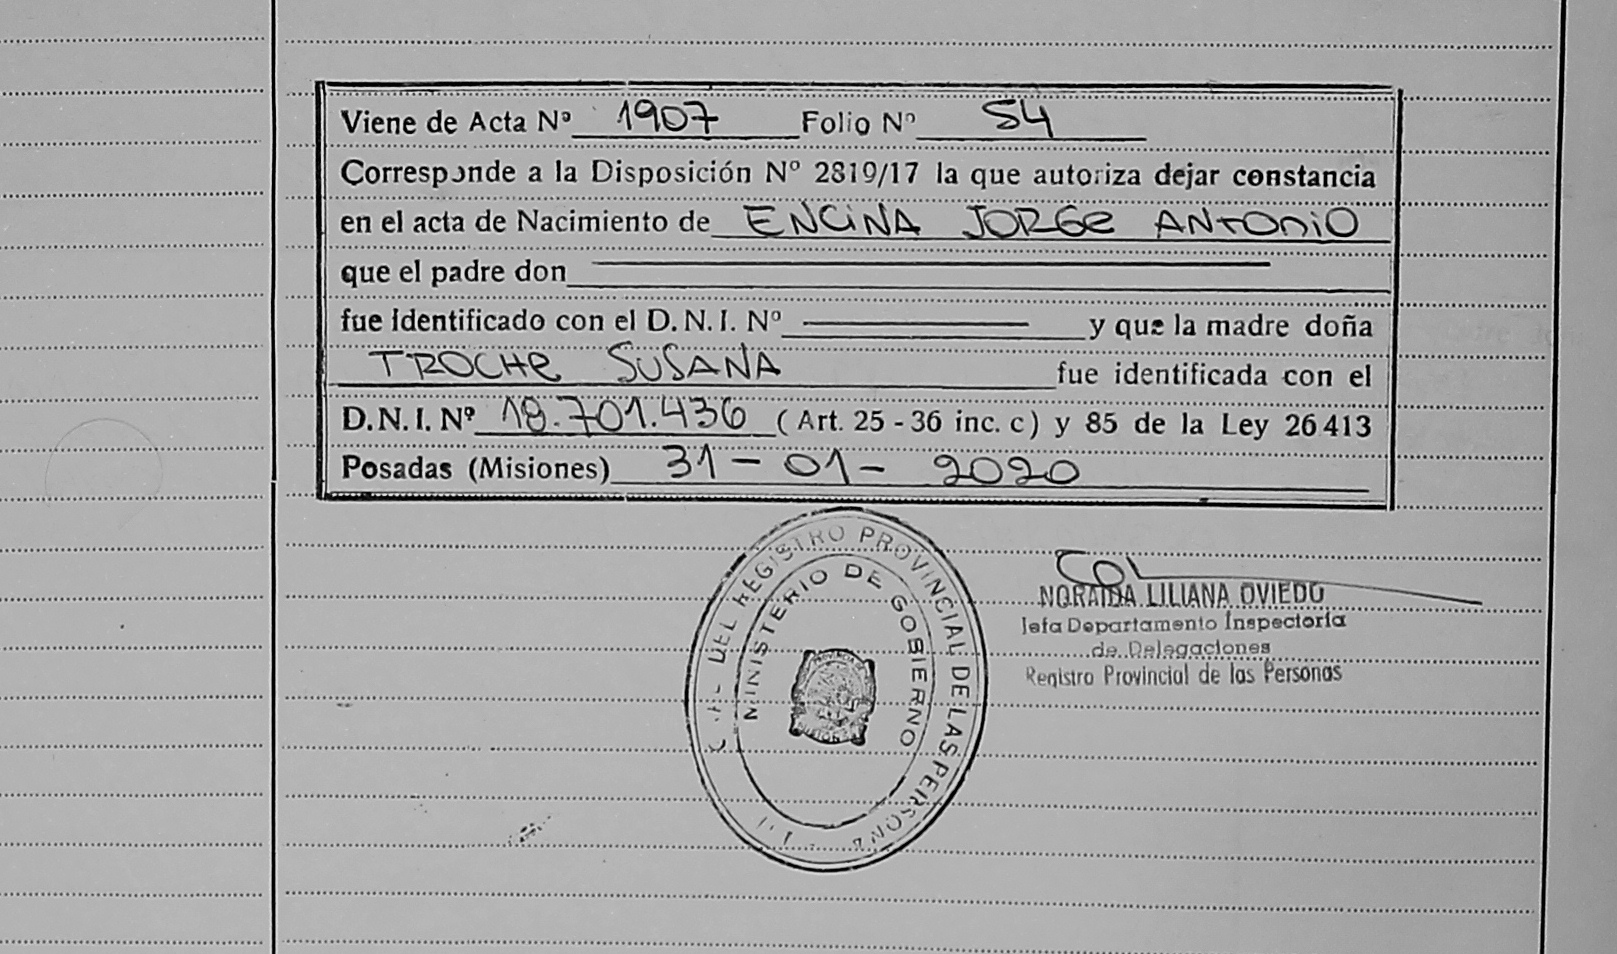 Viene de Acta Nº 1907 Folio Nº 54
Corresponde a la Disposición Nº 2819/17 la que autoriza dejar constancia
en el acta de Nacimiento de ENCINA JORGE ANTONIO
que el padre don
fue identificado con el D. N. I. Nº y que la madre doña
TROCHE SUSANA fue identificada con el
D. N. I. Nº 18.701.436 ( Art. 25 - 36 inc. c ) y 85 de la Ley 26 413
Posadas (Misiones) 31 - 01 - 2020
DEL REGISTRO PROVINCIAL DE LAS PERSONA
MINISTERIO DE GOBIERNO
NORAIDA LILIANA OVIEDO
Jefa Departamento Inspectoría
de Delegaciones
Registro Provincial de las Personas